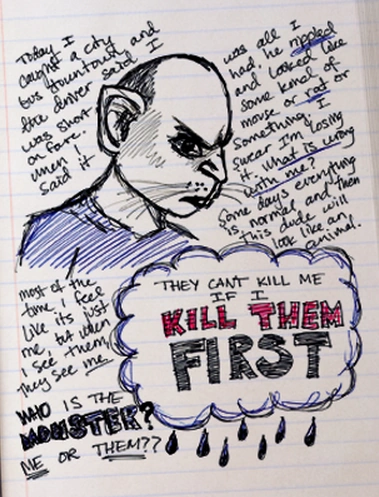 Today I
caught a city
bus downtown and
the driver said I
was short
on fare.
When I
said it
was all I
had, he rippled
and looked like
some kind of
mouse or rat or
something. I
swear I'm losing
it. What is wrong
with me?
Some days everything
is normal and then
this dude will
look like an
animal.
most of the
time, I feel
like it's just
me, but when
I see them,
they see me.
THEY CAN'T KILL ME
IF I
KILL THEM
FIRST
WHO IS THE
MONSTER?
ME OR THEM??